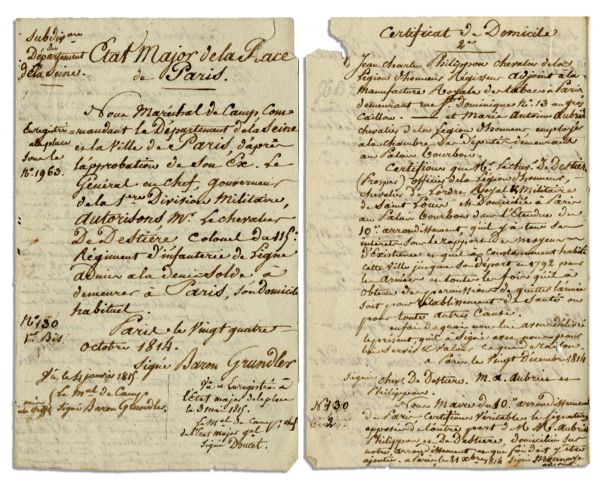 Subdivon
du
Département
de la Seine.
Etat Major de la Place
de Paris.
Nous Maréchal de Camp Com=
Enregistré
à la place
sous le
No. 1963.
=mandant le Département de la Seine
et la Ville de Paris, d'après
l'approbation de Son Ex. le
Général en chef, gouverneur
de la 1ere Division Militaire,
autorisons Mr. le chevalier
De Destiére, colonel du 115e
Régiment d'infanterie de ligne
admis à la demi-solde à
demeurer à Paris, son Domicile
habituel
No. 130
1er Bis
Paris le Vingt quatre
octobre 1814.
Signé Baron Grundler
Vu le 4 janvier 1815.
Le Mal. de Camp
Signé Baron Grundler.
Vu et Enregistré à
l'Etat major de la place
le 3 mai 1815.
Le Mal. de Camp, chef
de l'Etat major gal.
Signé Doucet.
Certificat de Domicile
2me
Jean Charles Philippon chevalier de la
Légion d'honneur Régisseur adjoint à la
Manufacture Royale de tabac à Paris
demeurant rue St. Dominique No. 13 au gros
Caillou. et Marie Antoine Aubrié
chevalier de la Légion d'honneur, employé
à la chambre des Députés demeurant
au Palais Bourbon.
Certifions que Mr. le chev. de Destiére
(Prosper) officier de la Légion d'honneur,
chevalier de l'ordre Royal & Militaire
de Saint Louis est Domicilié à Paris
au Palais Bourbon dans l'Etendue du
10e arrondissement, qu'il y a tous ses
intérêts sous le rapport de moyens
d'Existence et qu'il a constamment habité
cette Ville jusqu'au départ en 1792 pour
les Armées et toutes les fois qu'il a
obtenu des permissions de quitter l'armée
soit pour rétablissement de Santé ou
pour toutes autres Causes.
en foi de quoi nous lui avons délivré
le présent, qu'il a Signé avec nous pour
lui servir & valoir ce que de raison
à Paris le Vingt Décembre 1814
Signé chev. de Destiere. M. A. Aubrié et
Philippon.
No. 130
2
Nous Maire du 10e arrondissement
de Paris Certifions Véritables les Signatures
apposées d'autre part de MM. Aubrié
Philippon et De Destiére, domiciliés sur
notre arrondissement et que foi doit y être
ajoutée. à Paris, le 21 Xbre 1814 Signé
adjoint.